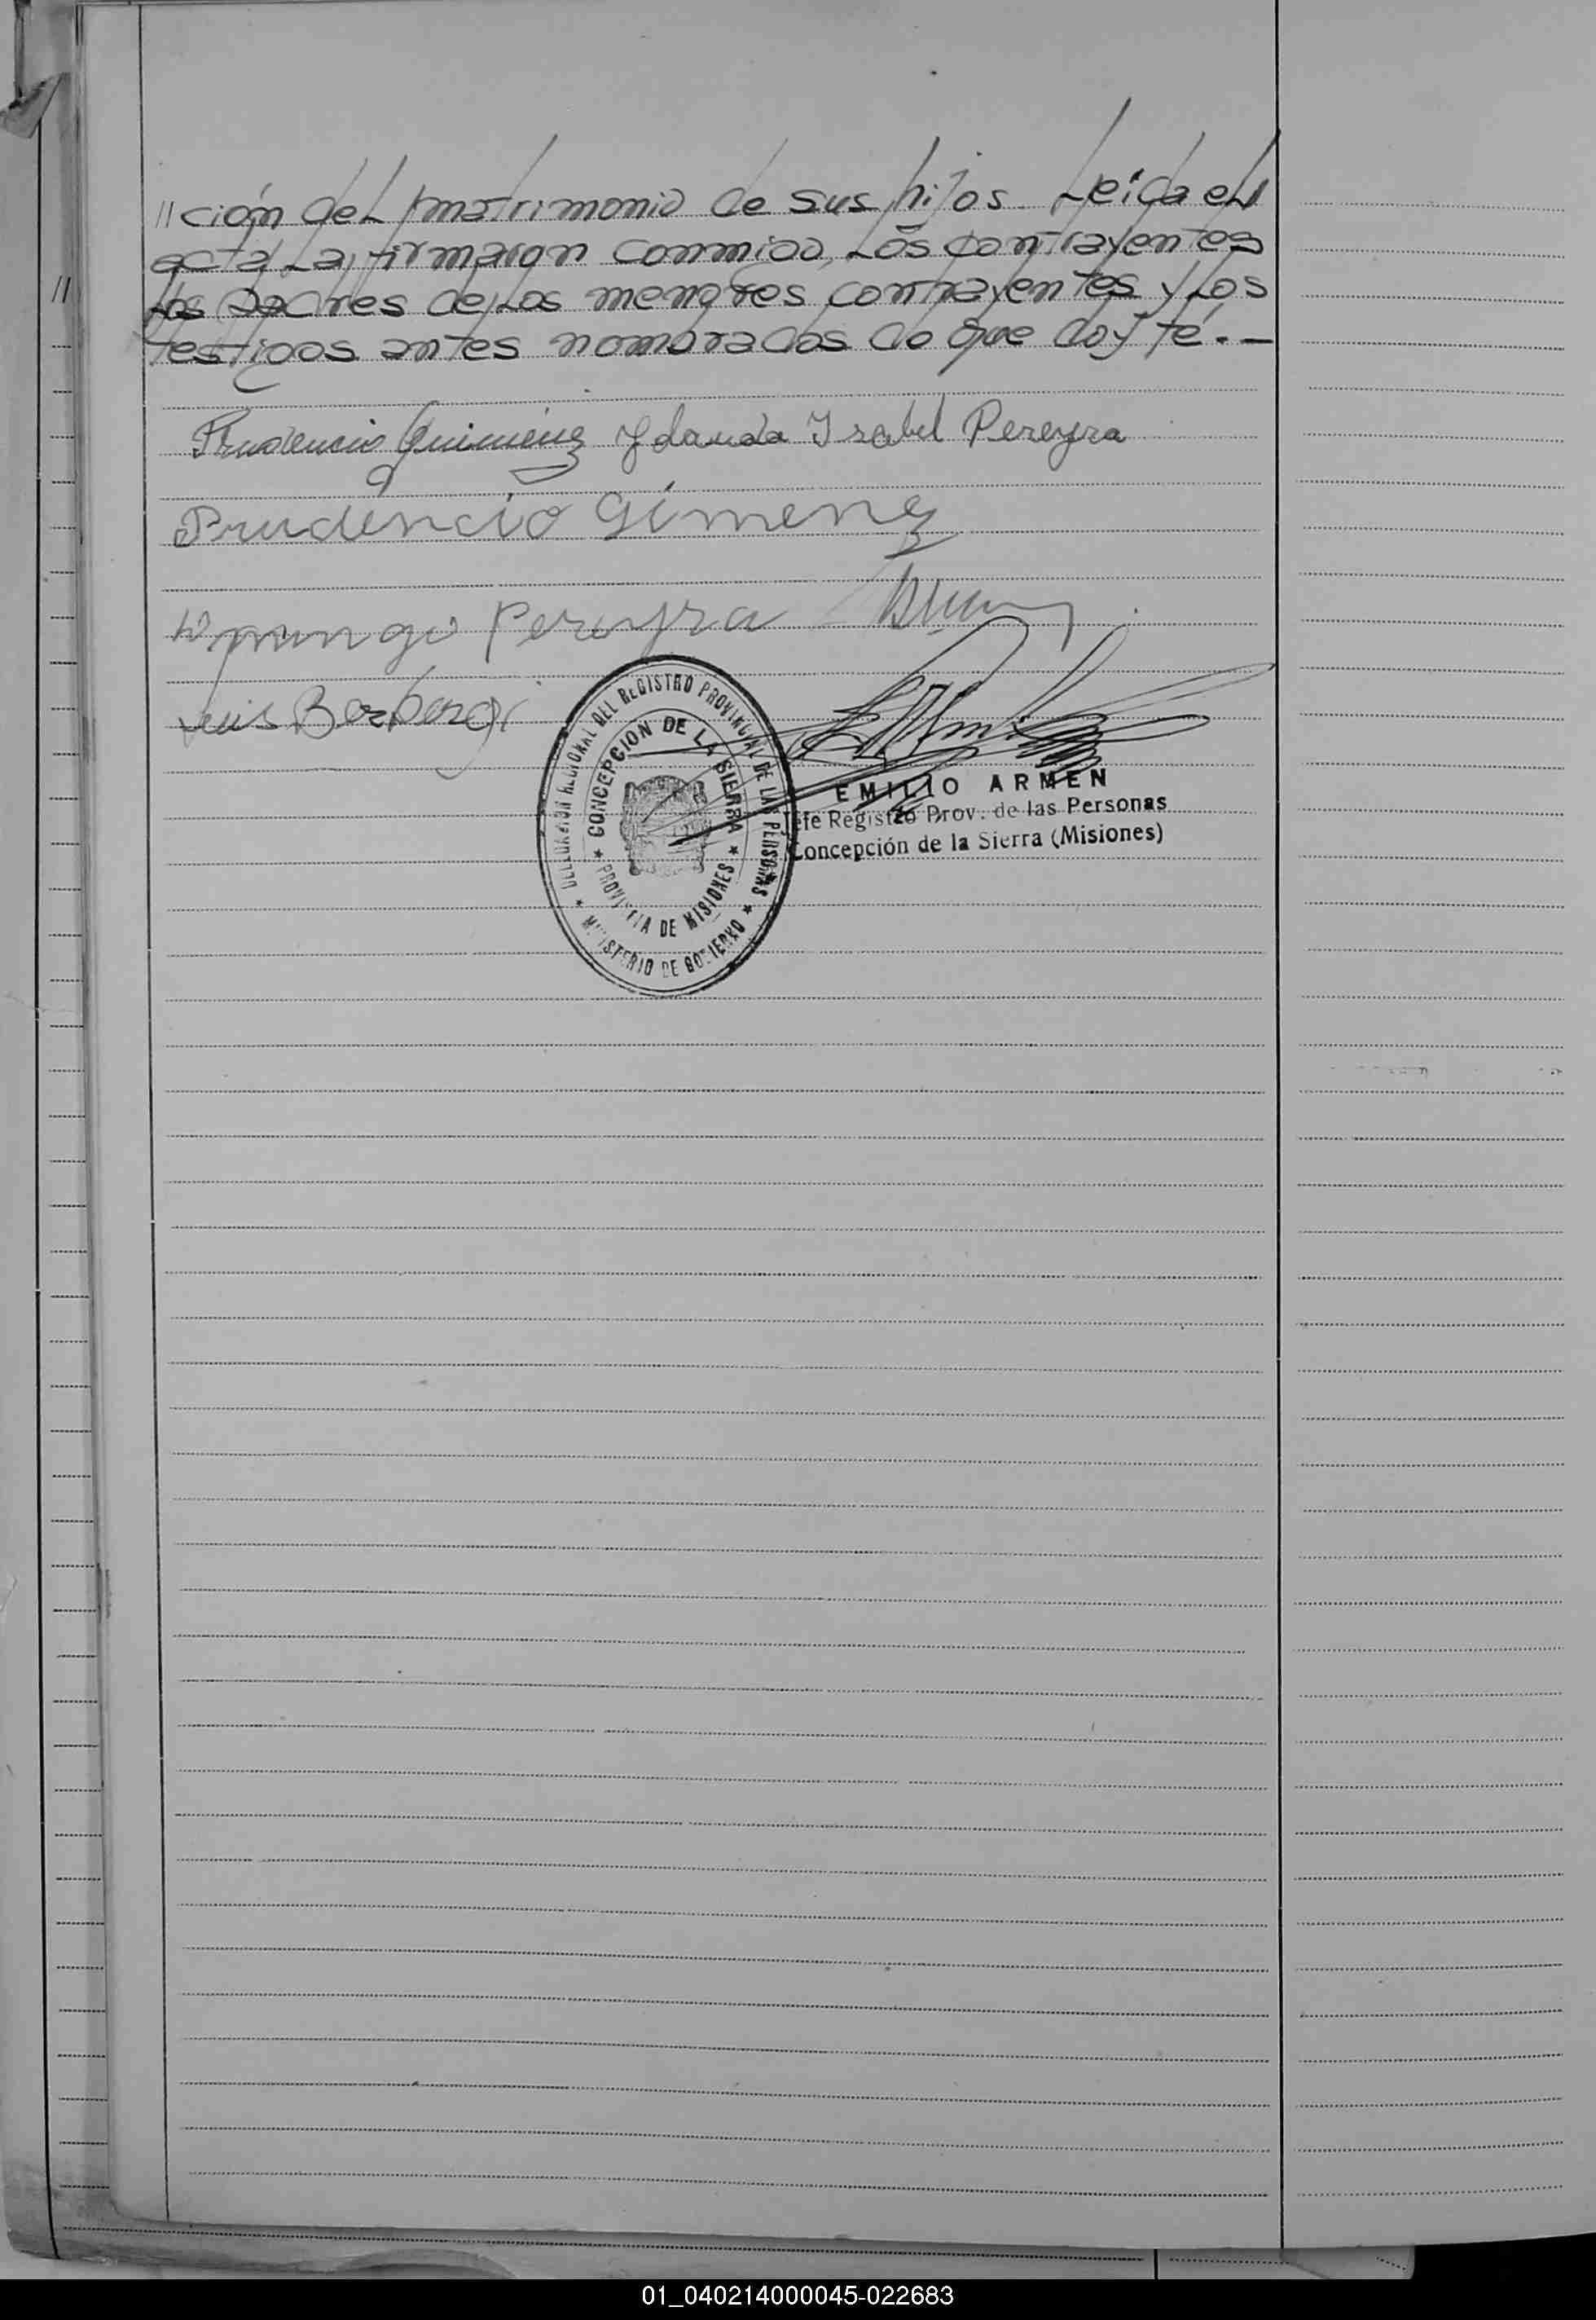 //ción del matrimonio de sus hijos. Leída el
acta, la firmaron conmigo, los contrayentes
los padres de los menores contrayentes y los
testigos antes nombrados de que doy fé.—
Prudencio Guimenez Yolanda Isabel Pereyra
Prudencio Gimenez
Domingo Pereyra
Luis
DELEGACION REGIONAL DEL REGISTRO PROVINCIAL DE LAS PERSONAS
★ MINISTERIO DE GOBIERNO ★
CONCEPCION DE LA SIERRA
★ PROVINCIA DE MISIONES ★
EMILIO ARMEN
Jefe Registro Prov. de las Personas
Concepción de la Sierra (Misiones)
//
01_040214000045-022683